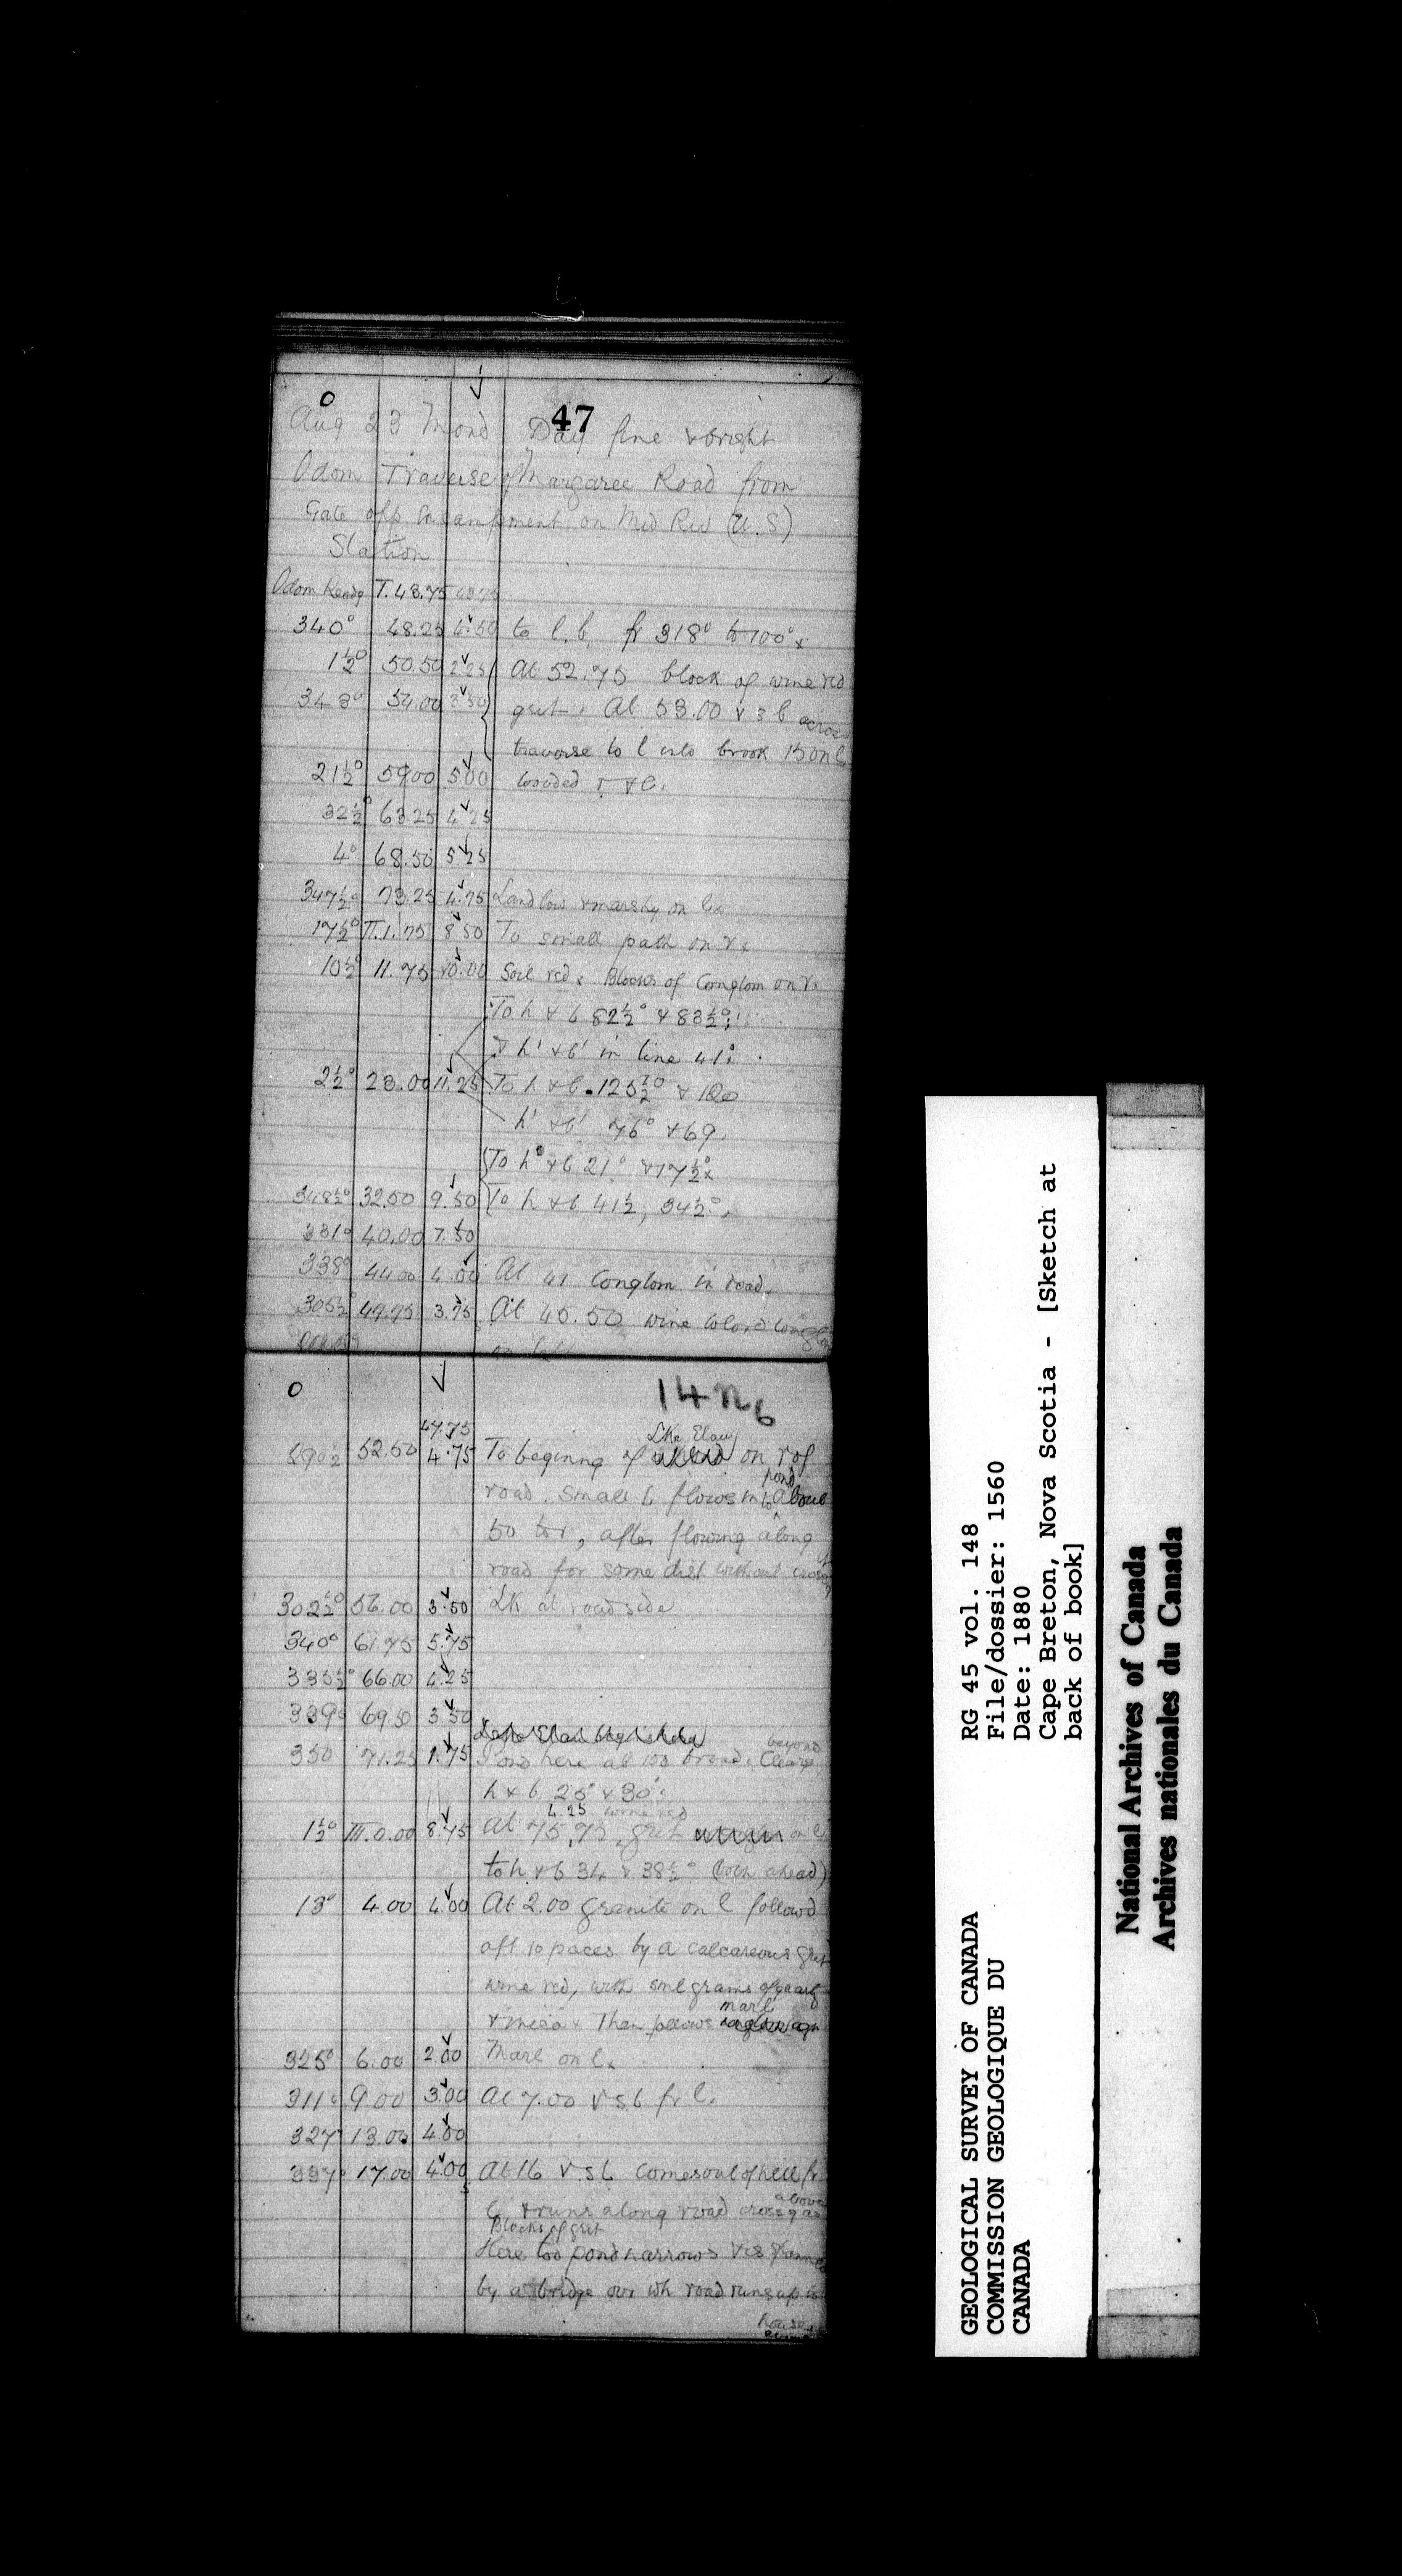 0 ✓
47
Aug 23 Mond Day fine & bright
Odom Traverse of Margaree Road from
Gate opp Encampment on Mid Riv (U.S)
Station
Odom Readg T. 43.75
340° 48.25 4.50 to l.b. fr 318° to 100° x
1½° 50.50 2.25 At 52.75 block of wine red
348° 54.00 3.50 grit. At 53.00 v s b across
traverse to l into brook 15 on l
21½° 59.00 5.00 wooded r. & l.
32½° 63.25 4.25
4° 68.50 5.25
347½° 73.25 4.75 Land low & marshy on l x
17½° II.1.75 8.50 To small path on r x
10½° 11.75 10.00 Soil red x Blocks of Conglom on r x
To h & b 82½° & 83½°
& h' & b' in line 41°
2½° 23.00 11.25 To h & b 125½° & 120
h' & b' 76° & 69.
To h & b 21° & 17½ x
348½° 32.50 9.50 To h & b 41½, 34½°.
331° 40.00 7.50
338° 44.00 4.00 At 41 Conglom in road.
305½° 47.75 3.75 At 45.50 wine colord conglom
on left
0 ✓
14 N 6
47.75
Lke Elaw
52.50 4.75 To beginng of on r of
pond
road. Small b flows into about
50 to r, after flowing along
road for some dist without crossg
302½° 56.00 3.50 Lk at roadside
340° 61.75 5.75
335½° 66.00 4.25
339° 69.50 3.50
beyond
350 71.25 1.75 Pond here ab 100 broad. Clearg
h & b 25° & 30°.
4.25 wine red
1½° III.0.00 8.75 At 75.75 grit on l
to h & b 34 & 38½° (both ahead)
13° 4.00 4.00 At 2.00 granite on l followd
aft 10 paces by a calcareous grit
wine red, with sml grains of quartz
marl
& mica x Then follows
325° 6.00 2.00 Marl on l x
311° 9.00 3.00 At 7.00 v s b fr l.
327 13.00 4.00
337° 17.00 4.00 At 16 v. s b comes out of hill fr
above
l & runs along road crossg as
Blocks of grit
Here too pond narrows & is spanned
by a bridge over wh road runs up to
house
GEOLOGICAL SURVEY OF CANADA
COMMISSION GEOLOGIQUE DU
CANADA
RG 45 vol. 148
File/dossier: 1560
Date: 1880
Cape Breton, Nova Scotia - [Sketch at
back of book]
National Archives of Canada
Archives nationales du Canada